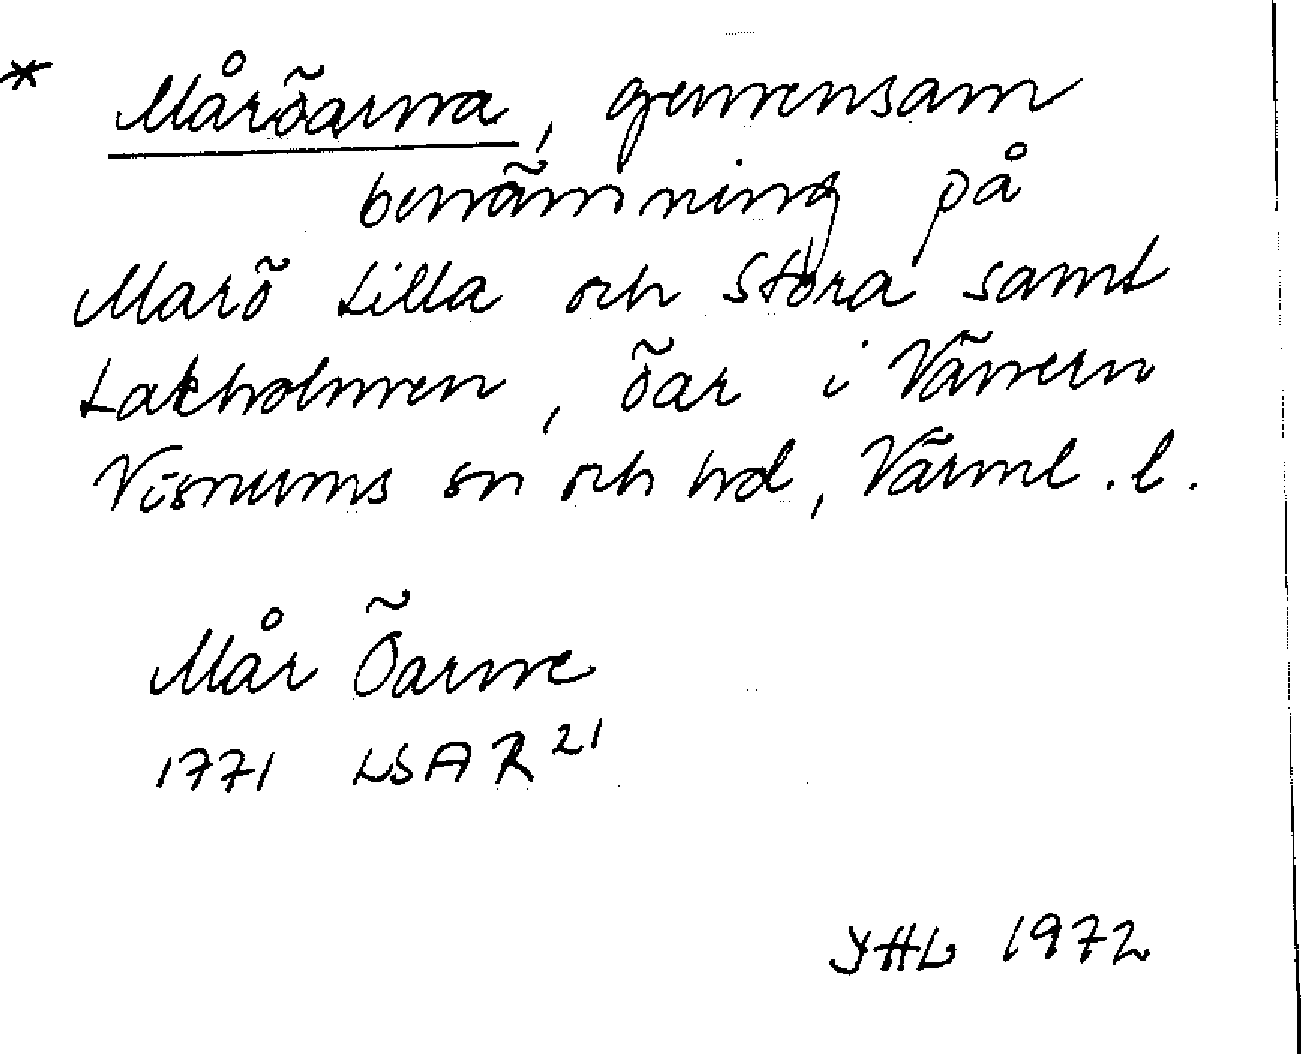 * Måröarna, gemensam
benämning på
Marö Lilla och Stora samt
Lakholmen, öar i Vänern
Visnums sn och hd, Värml. l.
Mår Öarne
1771 LSA R 21
YHL 1972